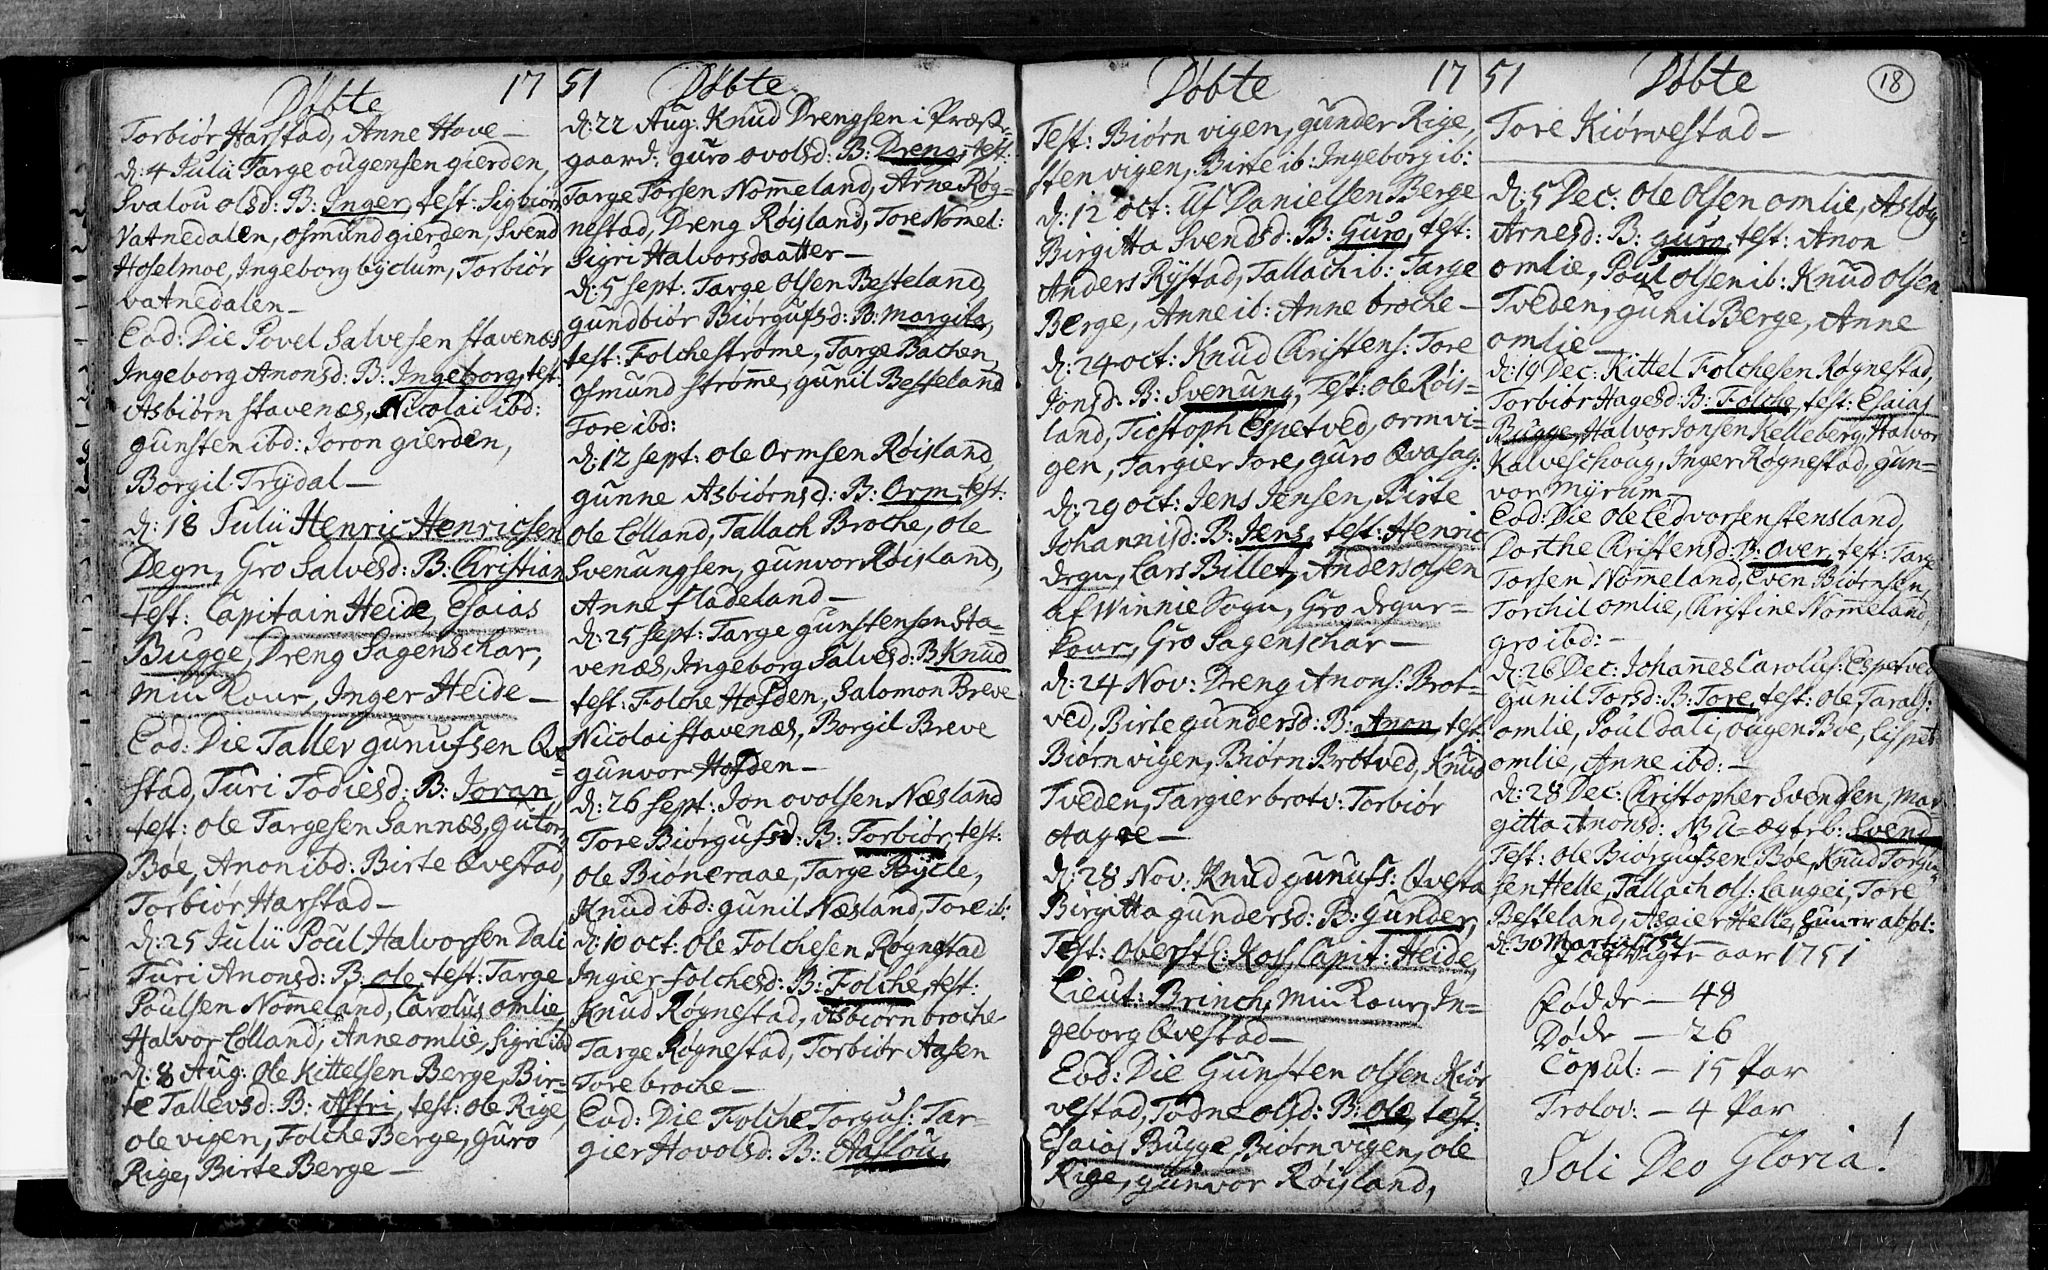 Døbte 17
Torbiør Harstad, Anne Hove —
d: 4 Julii Targe ougensen gierden,
Svalou olsd: B: Inger, test: Sigbiør
Vatnedalen, osmund gierden, Svend
Hoslemoe, Ingeborg byclum, Torbiør
vatnedalen —
Eod: Die Povel Salvesen stavenæs
Ingeborg Anonsd: B: Ingeborg, test:
Asbiørn stavenæs, Nicolai ibd:
gunsten ibd: Joron gierden,
Borgil Trydal —
d: 18 Julii Henric Henricsen
Degn, Gro Salvesd: B: Christian
test: Capitain Heide, Esaias
Bugge, Dreng Sagenschar,
Min Kone, Inger Heide —
Eod: Die Tallev gunufsen Qve=
stad, Turi Todiesd: B: Joran
test: ole Targesen Sannæs, gutorm
Bøe, Anon ibd: Birte Qvestad,
Torbiør Harstad —
d: 25 Julii Poul Halvorsen Dali
Turi Anonsd: B: ole, test: Targe
Poulsen Nom̄eland, Carolus omlie,
Halvor Lolland, Anne omlie, Sigri ibd
d: 8 Aug: ole Kittelsen Berge, Bir=
te Tallevsd: B: Assri, test: ole Rige,
ole vigen, Folche Berge, guro
Rige, Birte Berge —
51 Døbte
d: 22 Aug: Knud Drengsen i Præste
gaard: guro ovolsd: B: Dreng, test:
Targe Torsen Nom̄eland, Arne Røg=
nestad, Dreng Røisland, Tore Nomel:
Sigri Halvorsdaatter —
d: 5 sept: Targe Olsen Besteland,
gundbiør Biørgufsd: B: Margita,
test: Folche strøme, Targe Bachen,
osmund strøm̄e, gunil Besseland
Tore ibd:
d: 12 sept: ole Ormsen Røisland,
gunne Asbiørnsd: B: Orm, test:
ole Lolland, Tallach Broche, ole
Svenungsen, gunvor Røisland,
Anne fladeland —
d: 25 sept: Targe gunstensen Sta=
venæs, Ingeborg Salvesd: B Knud
test: Folche Hofden, Salomon Breve
Nicolai stavenæs, Borgil Breve
gunvor Hofden —
d: 26 sept: Jon ovolsen Næsland
Tore Biørgufsd: B: Torbiør, test:
ole Biøneraae, Targe Rycle,
Knud ibd: gunil Næsland, Tore ib:
d: 10 oct: ole Folchesen Røgnestad
Ingier folchesd: B: Folche, test:
Knud Røgnestad, Asbiørn broche
Targe Røgnestad, Torbiør Aasen
Tore broche —
Eod: Die Folche Torgus: Tar=
gier Hovolsd: B: Aaslou,
Døbte 17
Test: Biørn vigen, gunder Rige,
sten vigen, Birte ib: Ingeborg ib:
d: 12 oct: Uf Danielsen Berge
Birgitta Svendsd: B: Guro, test:
Anders Rystad, Tallach ib: Targe
Berge, Anne ib: Anne broche —
d: 24 oct: Knud Christens: Tore
Jonsd: B: Svenung, Test: ole Røis=
land, Espetved, orm vi=
gen, Targier Jore, guro Qvasag:
d: 29 oct: Jens Jensen, Birte
Johannisd: B: Jens, test: Henric
degn, Lars Billet, Anders olsen
af Winnie Sogn, Gro degns=
Kone, Gro Sagenschar —
d: 24 Nov: Dreng Anons: Brot=
ved, Birte gundersd: B: Anon, test
Biørn vigen, Biørn Brotved, Knud
Tveden, Targier brotv: Torbiør
Aagre —
d: 28 Nov: Knud gunufs: Qvesta
Birgitta gundersd: B: gunder,
Test: overstl: Ross, Capit: Heide,
Lieut: Brinch, Min Kone, In=
geborg Qvestad —
Eod: Die Gunsten olsen Kiør
vestad, Todne olsd: B: Ole, test:
Esaias Bugge, Biørn vigen, ole
Rige, gunvor Røisland,
51 Døbte 18
Tore Kiørvestad —
d: 5 Dec: ole olsen omlie, Aslog
Arnesd: B: guro, test: Anon
omlie, Poul olsen ib: Knud olsen
Tveden, gunil Berge, Anne
omlie —
d: 19 Dec: Kittel Folchesen Røgnestad,
Torbiør Hagesd: B: Folche, test: Esaias
Bugge, Halvor Jonsen Kelleberg, Halvor
Kalveschoug, Inger Rognestad, gun=
vor Myrum —
Eod: Die ole Ledvorsen stensland,
Dorthe Christensd: B: over, test: Targe
Torsen Nom̄eland, Even Biørnsen,
Torchil omlie, Christine Nom̄eland,
gro ibd: —
d: 26 Dec: Johannes Carolus: Espetved
gunil Torsd: B: Tore, test: ole Taralds:
omlie, Poul dali, ougen Boe,
omlie, Anne ibd: —
d: 28 Dec: Christopher Svendsen, Mar=
gitta Anonsd: B: Svend,
Test: ole Biørgufsen Bøe, Knud Torgius
sen Helle, Tallach ols: Langei, Tore
Besteland, Helle, absol:
d: 30 Martii 1752 —
aar 1751
Fødde — 48
Døde — 26
Copul: — 15 Par
Trolov: — 4 Par
Soli Deo Gloria!